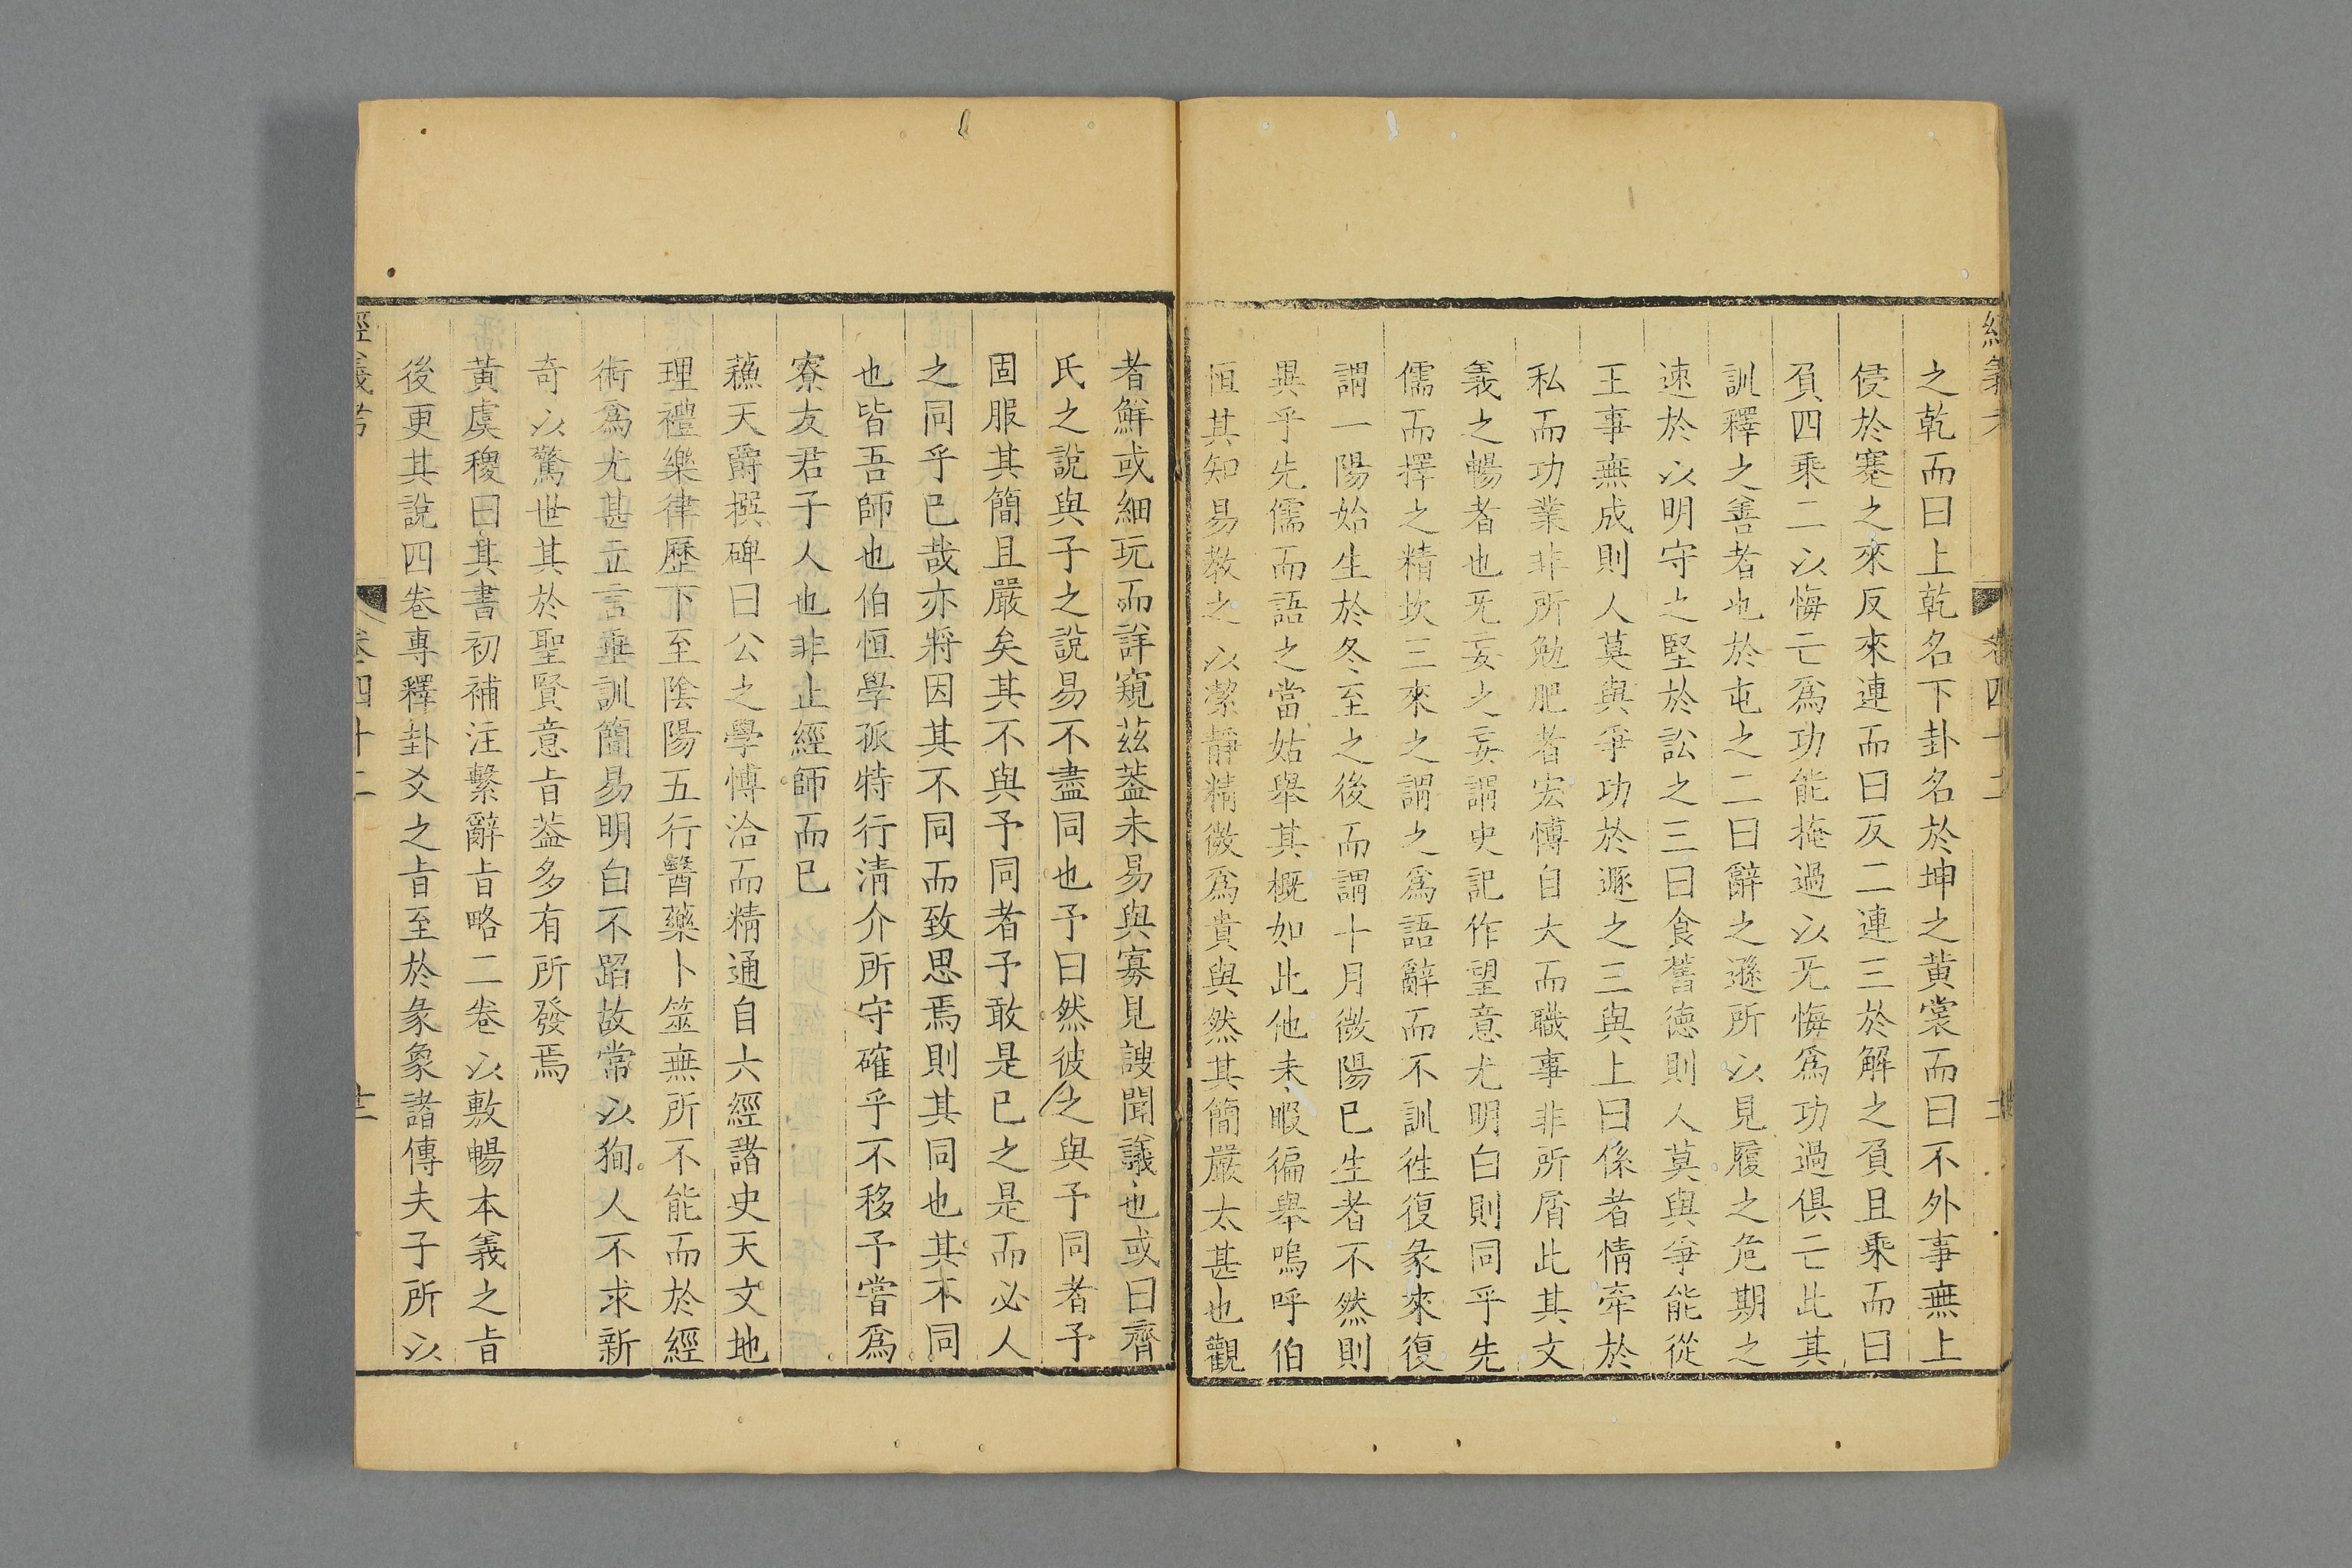 之乾而曰上乾名下卦名於坤之黄裳而曰不外事無上
侵於蹇之來反來連而曰反二連三於解之負且乘而曰
負四乘二以悔亡爲功能掩過以无悔爲功過俱亡此其
訓釋之善者也於屯之二曰辭之遜所以見履之危期之
速於以明守之堅於訟之三曰食舊德則人莫與爭能從
王事無成則人莫與爭功於遯之三與上曰係者情牽於
私而功業非所勉肥者宏博自大而職事非所屑此其文
義之暢者也无妄之妄謂史記作望意尤明白則同乎先
儒而擇之精坎三來之謂之爲語辭而不訓徃復彖來復
謂一陽始生於冬至之後而謂十月微陽已生者不然則
異乎先儒而語之當姑舉其概如此他未暇徧舉嗚呼伯
恒其知易教之以潔靜精微爲貴與然其簡嚴太甚也觀
者鮮或細玩而詳窺茲葢未易與寡見謏聞議也或曰齊
氏之說與子之說易不盡同也予曰然彼之與予同者予
固服其簡且嚴矣其不與予同者予敢是已之是而必人
之同乎已哉亦將因其不同而致思焉則其同也其不同
也皆吾師也伯恒學孤特行清介所守確乎不移予嘗爲
寮友君子人也非止經師而已
蘓天爵撰碑曰公之學博洽而精通自六經諸史天文地
理禮樂律歷下至隂陽五行醫藥卜筮無所不能而於經
術爲尤甚立言垂訓簡易明白不蹈故常以狥人不求新
奇以驚世其於聖賢意旨葢多有所發焉
黃虞稷曰其書初補注繫辭旨略二卷以敷暢本義之旨
後更其說四卷專釋卦爻之旨至於彖象諸傳夫子所以
經義考
卷四十二